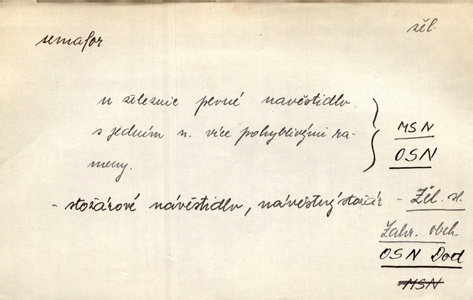 semafor žel.
u železnic pevné návěstidlo
s jedním n. více pohyblivými ra- MSN
meny. OSN
- stožárové návěstidlo, návěstný stožár - Žel. sl.
Zahr. obch.
OSN Dod
MSN